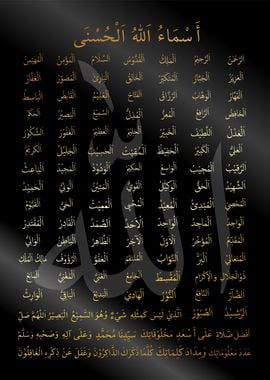 أَسْمَاءُ اللهِ الْحُسْنَى
الرَّحْمَنُ الرَّحِيمُ الْمَلِكُ الْقُدُّوسُ السَّلَامُ الْمُؤْمِنُ الْمُهَيْمِنُ
الْعَزِيزُ الْجَبَّارُ الْمُتَكَبِّرُ الْخَالِقُ الْبَارِئُ الْمُصَوِّرُ الْغَفَّارُ
الْقَهَّارُ الْوَهَّابُ الرَّزَّاقُ الْفَتَّاحُ الْعَلِيمُ الْقَابِضُ الْبَاسِطُ
الْخَافِضُ الرَّافِعُ الْمُعِزُّ الْمُذِلُّ السَّمِيعُ الْبَصِيرُ الْحَكَمُ
الْعَدْلُ اللَّطِيفُ الْخَبِيرُ الْحَلِيمُ الْعَظِيمُ الْغَفُورُ الشَّكُورُ
الْعَلِيُّ الْكَبِيرُ الْحَفِيظُ الْمُقِيتُ الْحَسِيبُ الْجَلِيلُ الْكَرِيمُ
الرَّقِيبُ الْمُجِيبُ الْوَاسِعُ الْحَكِيمُ الْوَدُودُ الْمَجِيدُ الْبَاعِثُ
الشَّهِيدُ الْحَقُّ الْوَكِيلُ الْقَوِيُّ الْمَتِينُ الْوَلِيُّ الْحَمِيدُ
الْمُحْصِي الْمُبْدِئُ الْمُعِيدُ الْمُحْيِي الْمُمِيتُ الْحَيُّ الْقَيُّومُ
الْوَاجِدُ الْمَاجِدُ الْوَاحِدُ الْأَحَدُ الصَّمَدُ الْقَادِرُ الْمُقْتَدِرُ
الْمُقَدِّمُ الْمُؤَخِّرُ الْأَوَّلُ الْآخِرُ الظَّاهِرُ الْبَاطِنُ الْوَالِي
الْمُتَعَالِي الْبَرُّ التَّوَّابُ الْمُنْتَقِمُ الْعَفُوُّ الرَّؤُوفُ مَالِكُ الْمُلْكِ
ذُو الْجَلَالِ وَالْإِكْرَامِ الْمُقْسِطُ الْجَامِعُ الْغَنِيُّ الْمُغْنِي الْمَانِعُ
الضَّارُّ النَّافِعُ النُّورُ الْهَادِي الْبَدِيعُ الْبَاقِي الْوَارِثُ
الرَّشِيدُ الصَّبُورُ الَّذِي لَيْسَ كَمِثْلِهِ شَيْءٌ وَهُوَ السَّمِيعُ الْبَصِيرُ اللَّهُمَّ صَلِّ
أَفْضَلَ صَلَاةٍ عَلَى أَسْعَدِ مَخْلُوقَاتِكَ سَيِّدِنَا مُحَمَّدٍ وَعَلَى آلِهِ وَصَحْبِهِ وَسَلِّمْ
عَدَدَ مَعْلُومَاتِكَ وَمِدَادَ كَلِمَاتِكَ كُلَّمَا ذَكَرَكَ الذَّاكِرُونَ وَغَفَلَ عَنْ ذِكْرِهِ الْغَافِلُونَ
الله